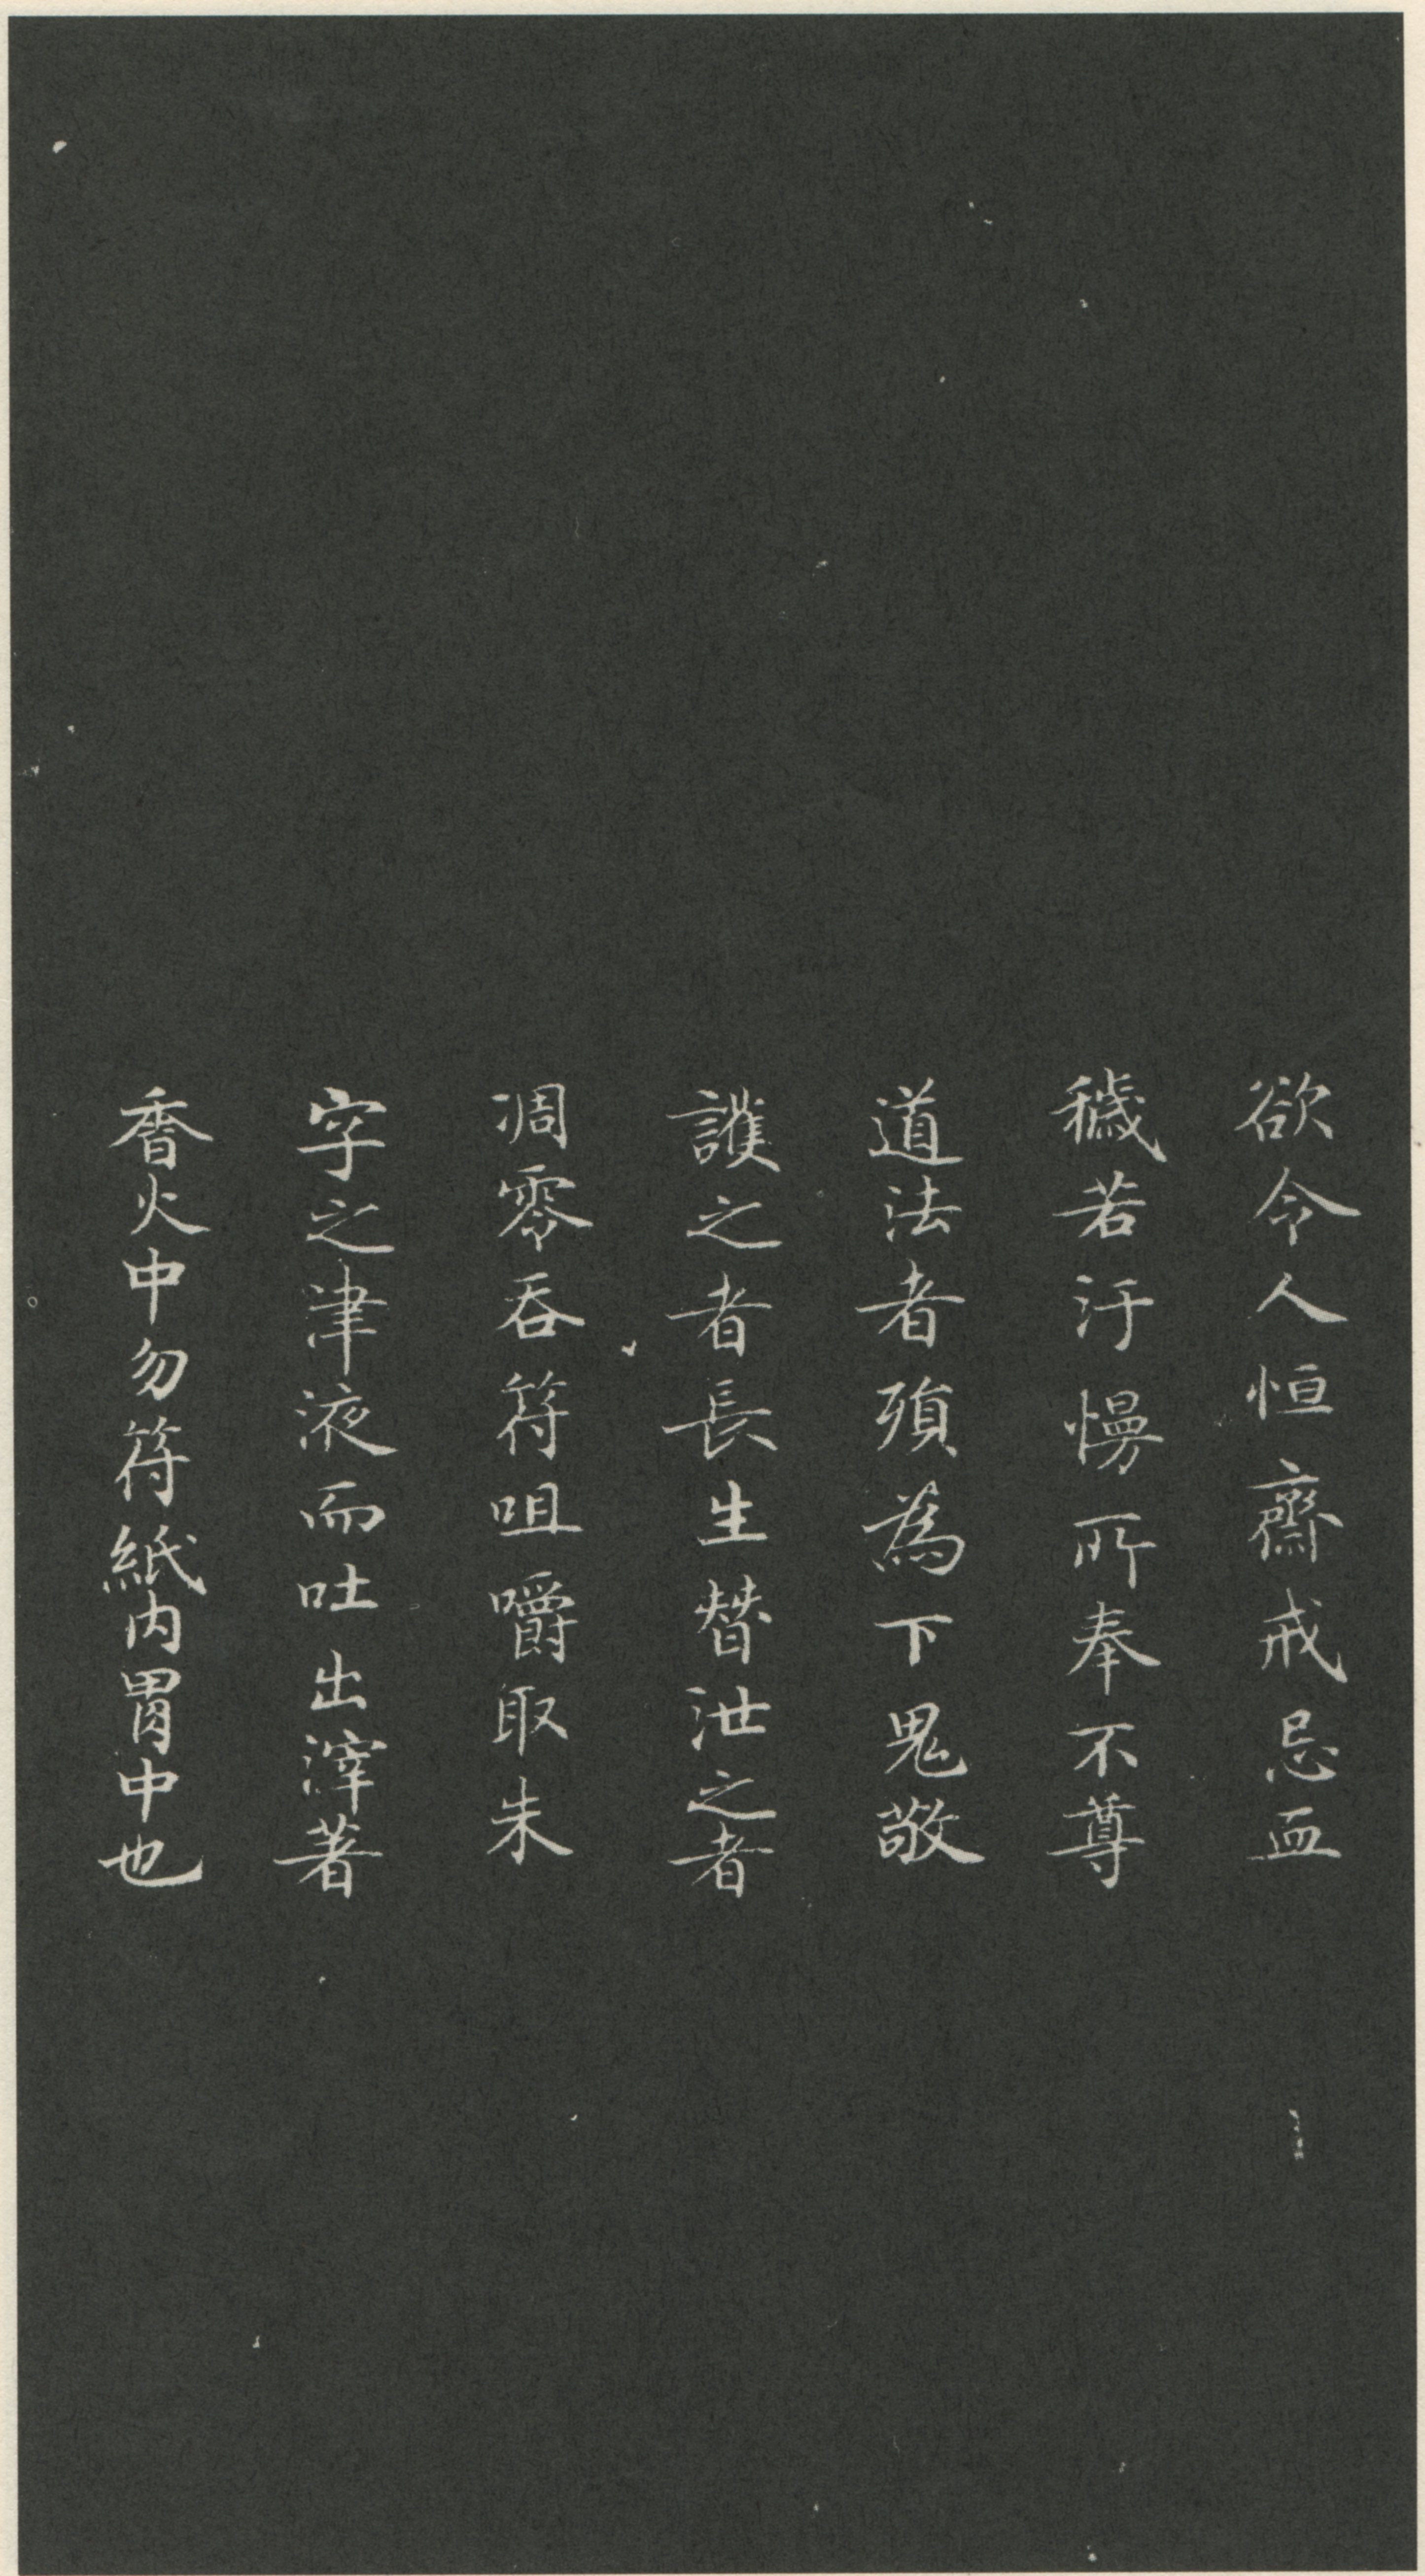 欲令人恒齋戒忌血
穢若汙慢所奉不尊
道法者殞為下鬼敬
護之者長生替泄之者
凋零吞符咀嚼取朱
字之津液而吐出滓著
香火中勿符紙內胃中也